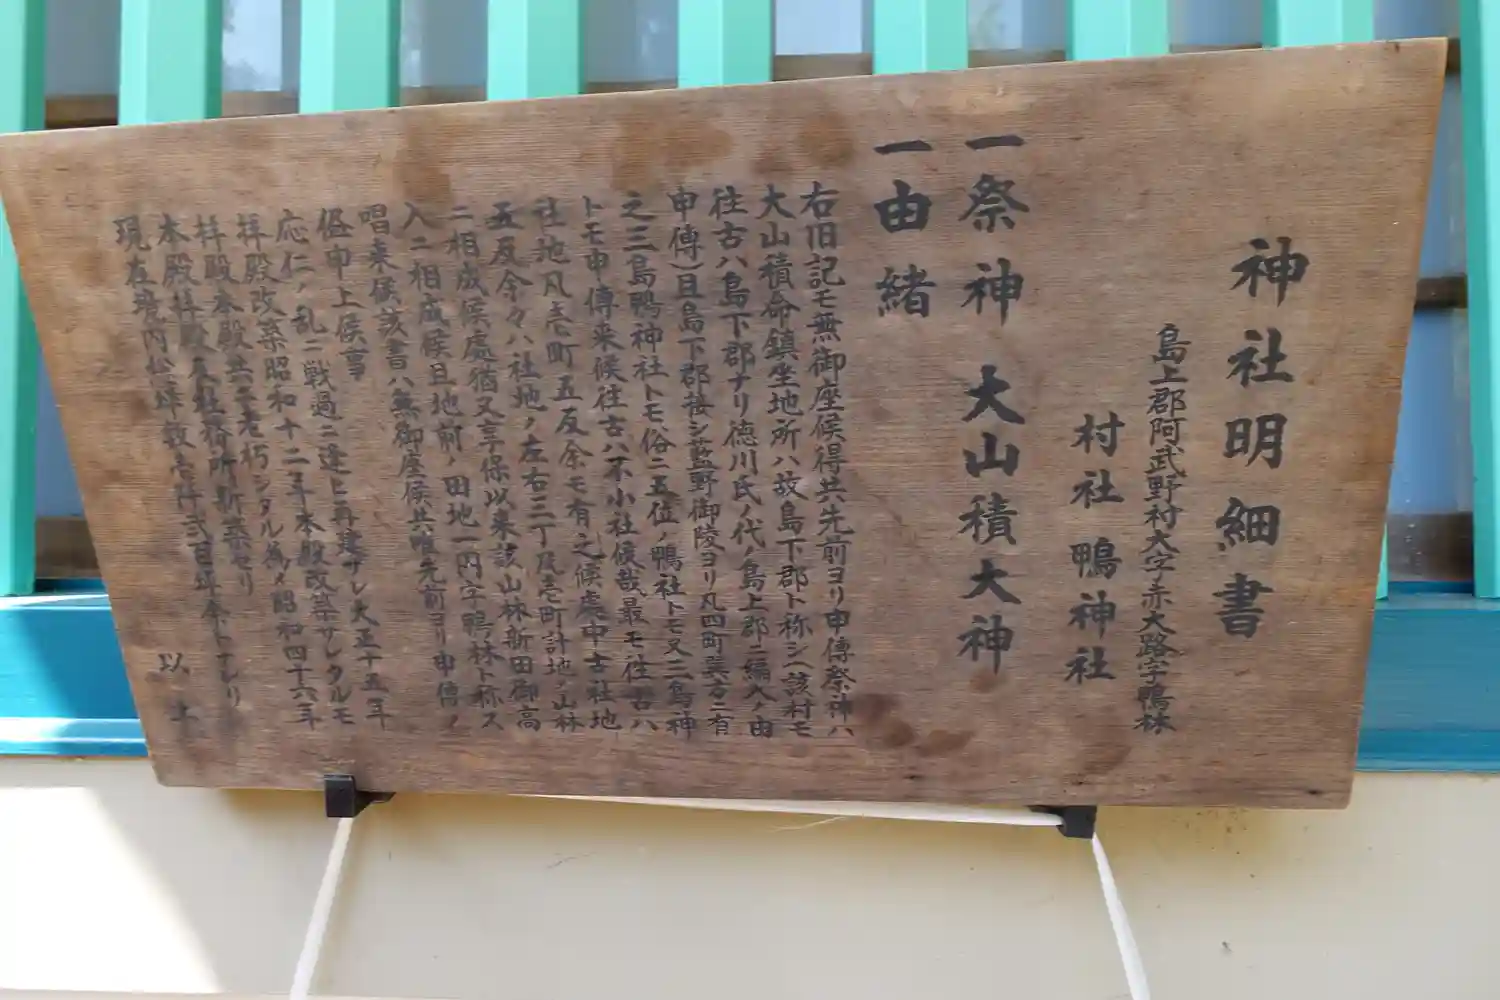 神社明細書
島上郡阿武野村大字赤大路字鴨林
村社 鴨神社
一祭神 大山積大神
一由緒
右旧記モ無御座候得共先前ヨリ申傳祭神ハ
大山積命鎮坐地所ハ故島下郡ト称シ(該村モ
往古ハ島下郡ナリ徳川氏ノ代ノ島上郡ニ編入ノ由
申傳)且島下郡接シ藍野御陵ヨリ凡四町巽方ニ有
之三島鴨神社トモ俗ニ五位ノ鴨社トモ又三島神
トモ申傳来候往古ハ不小社候哉最モ往古ハ
社地凡壱町五反余モ有之候處中古社地
五反余々ハ社地ノ左右三丁及壱町計地ノ山林
ニ相成候處猶又享保以来該山林新田御高
入ニ相成候且地前ノ田地一円字鴨林ト称ス
唱来候該書ハ無御座候共唯先前ヨリ申傳ノ
侭申上候事
応仁ノ乱ニ戦過ニ逢ヒ再建サレ大正十五年
拝殿改築昭和十二年本殿改築サレタルモ
拝殿本殿共ニ老朽シタル為メ昭和四十六年
本殿拝殿及社務所新築セリ
現在境内松坪数壱仟弐百坪余トナレリ
以上